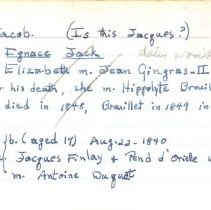 Jacob. (Is this Jacques?)
Egnace Jack dates won't
Elizabeth m. Jean Gingras-II
r his death, she m. Hippolyte Brouill
died in 1848, Brouillet in 1849 in
(b. (aged 17) Aug. 22 - 1840
Jacques Finlay & Pend d'Oreille w
m. Antoine Duquet